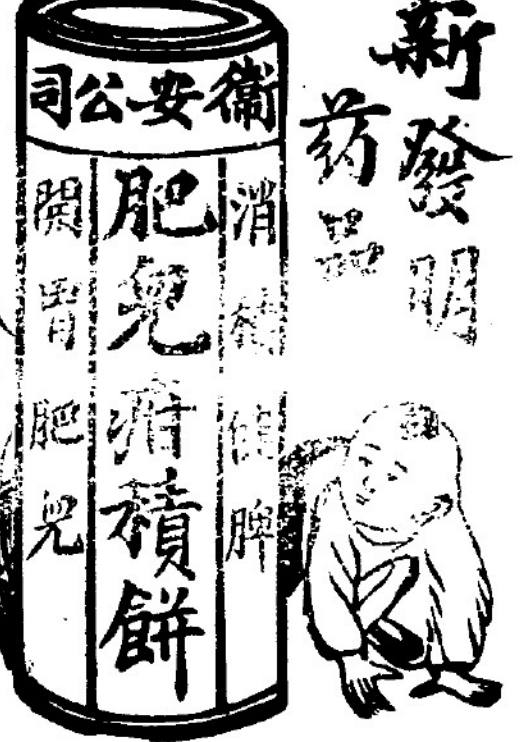 新發明
药品
衞安公司
消積健脾
肥兒疳積餅
開胃肥兒